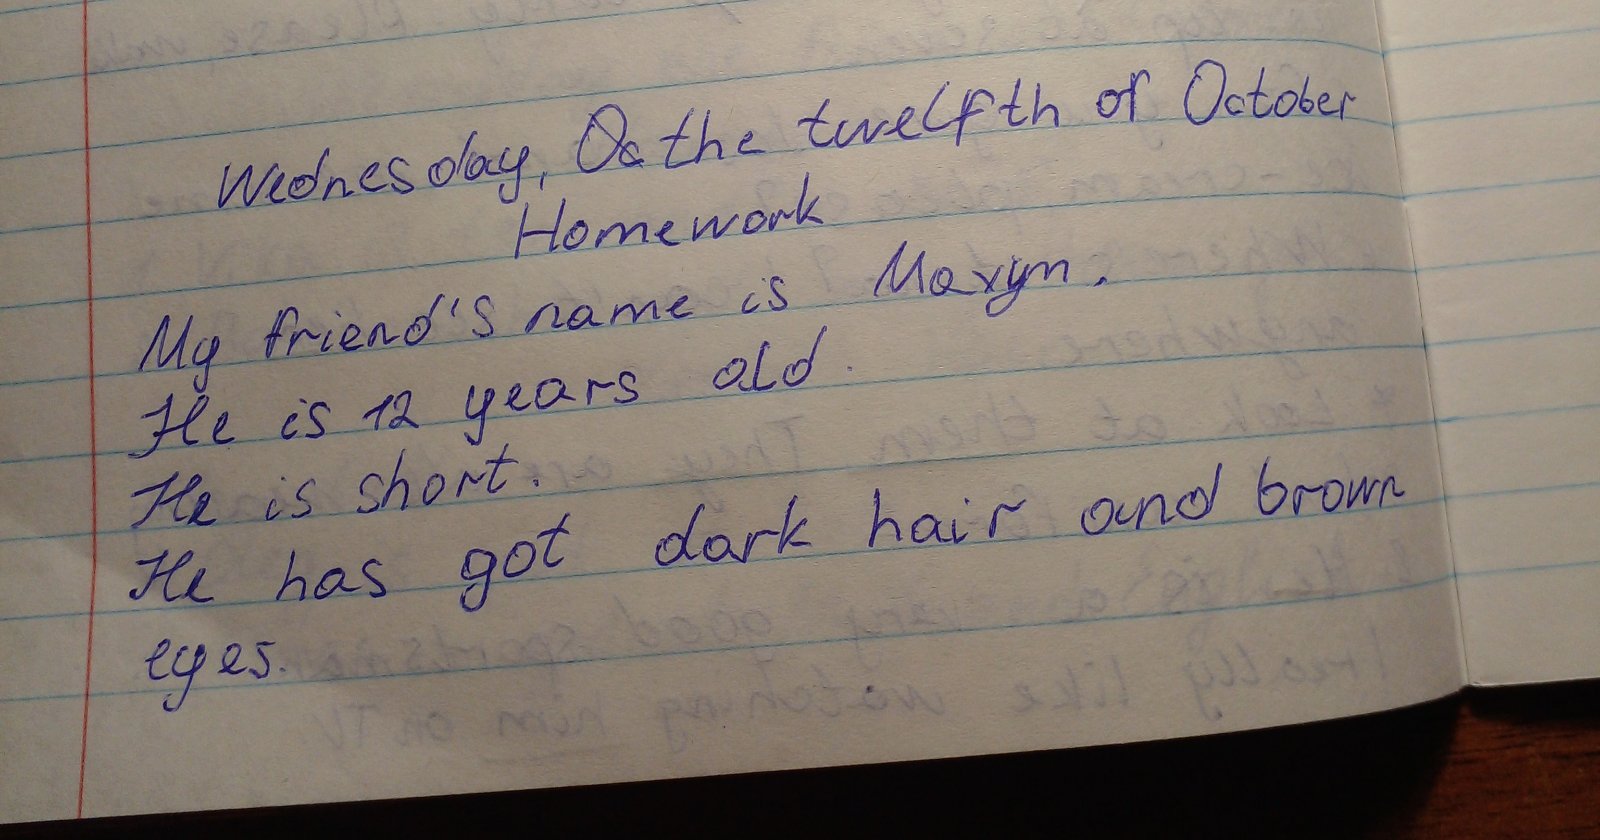 Wednesday, Oc the twelfth of October
Homework
My friend's name is Maxym.
He is 12 years old.
He is short.
He has got dark hair and brown
eyes.